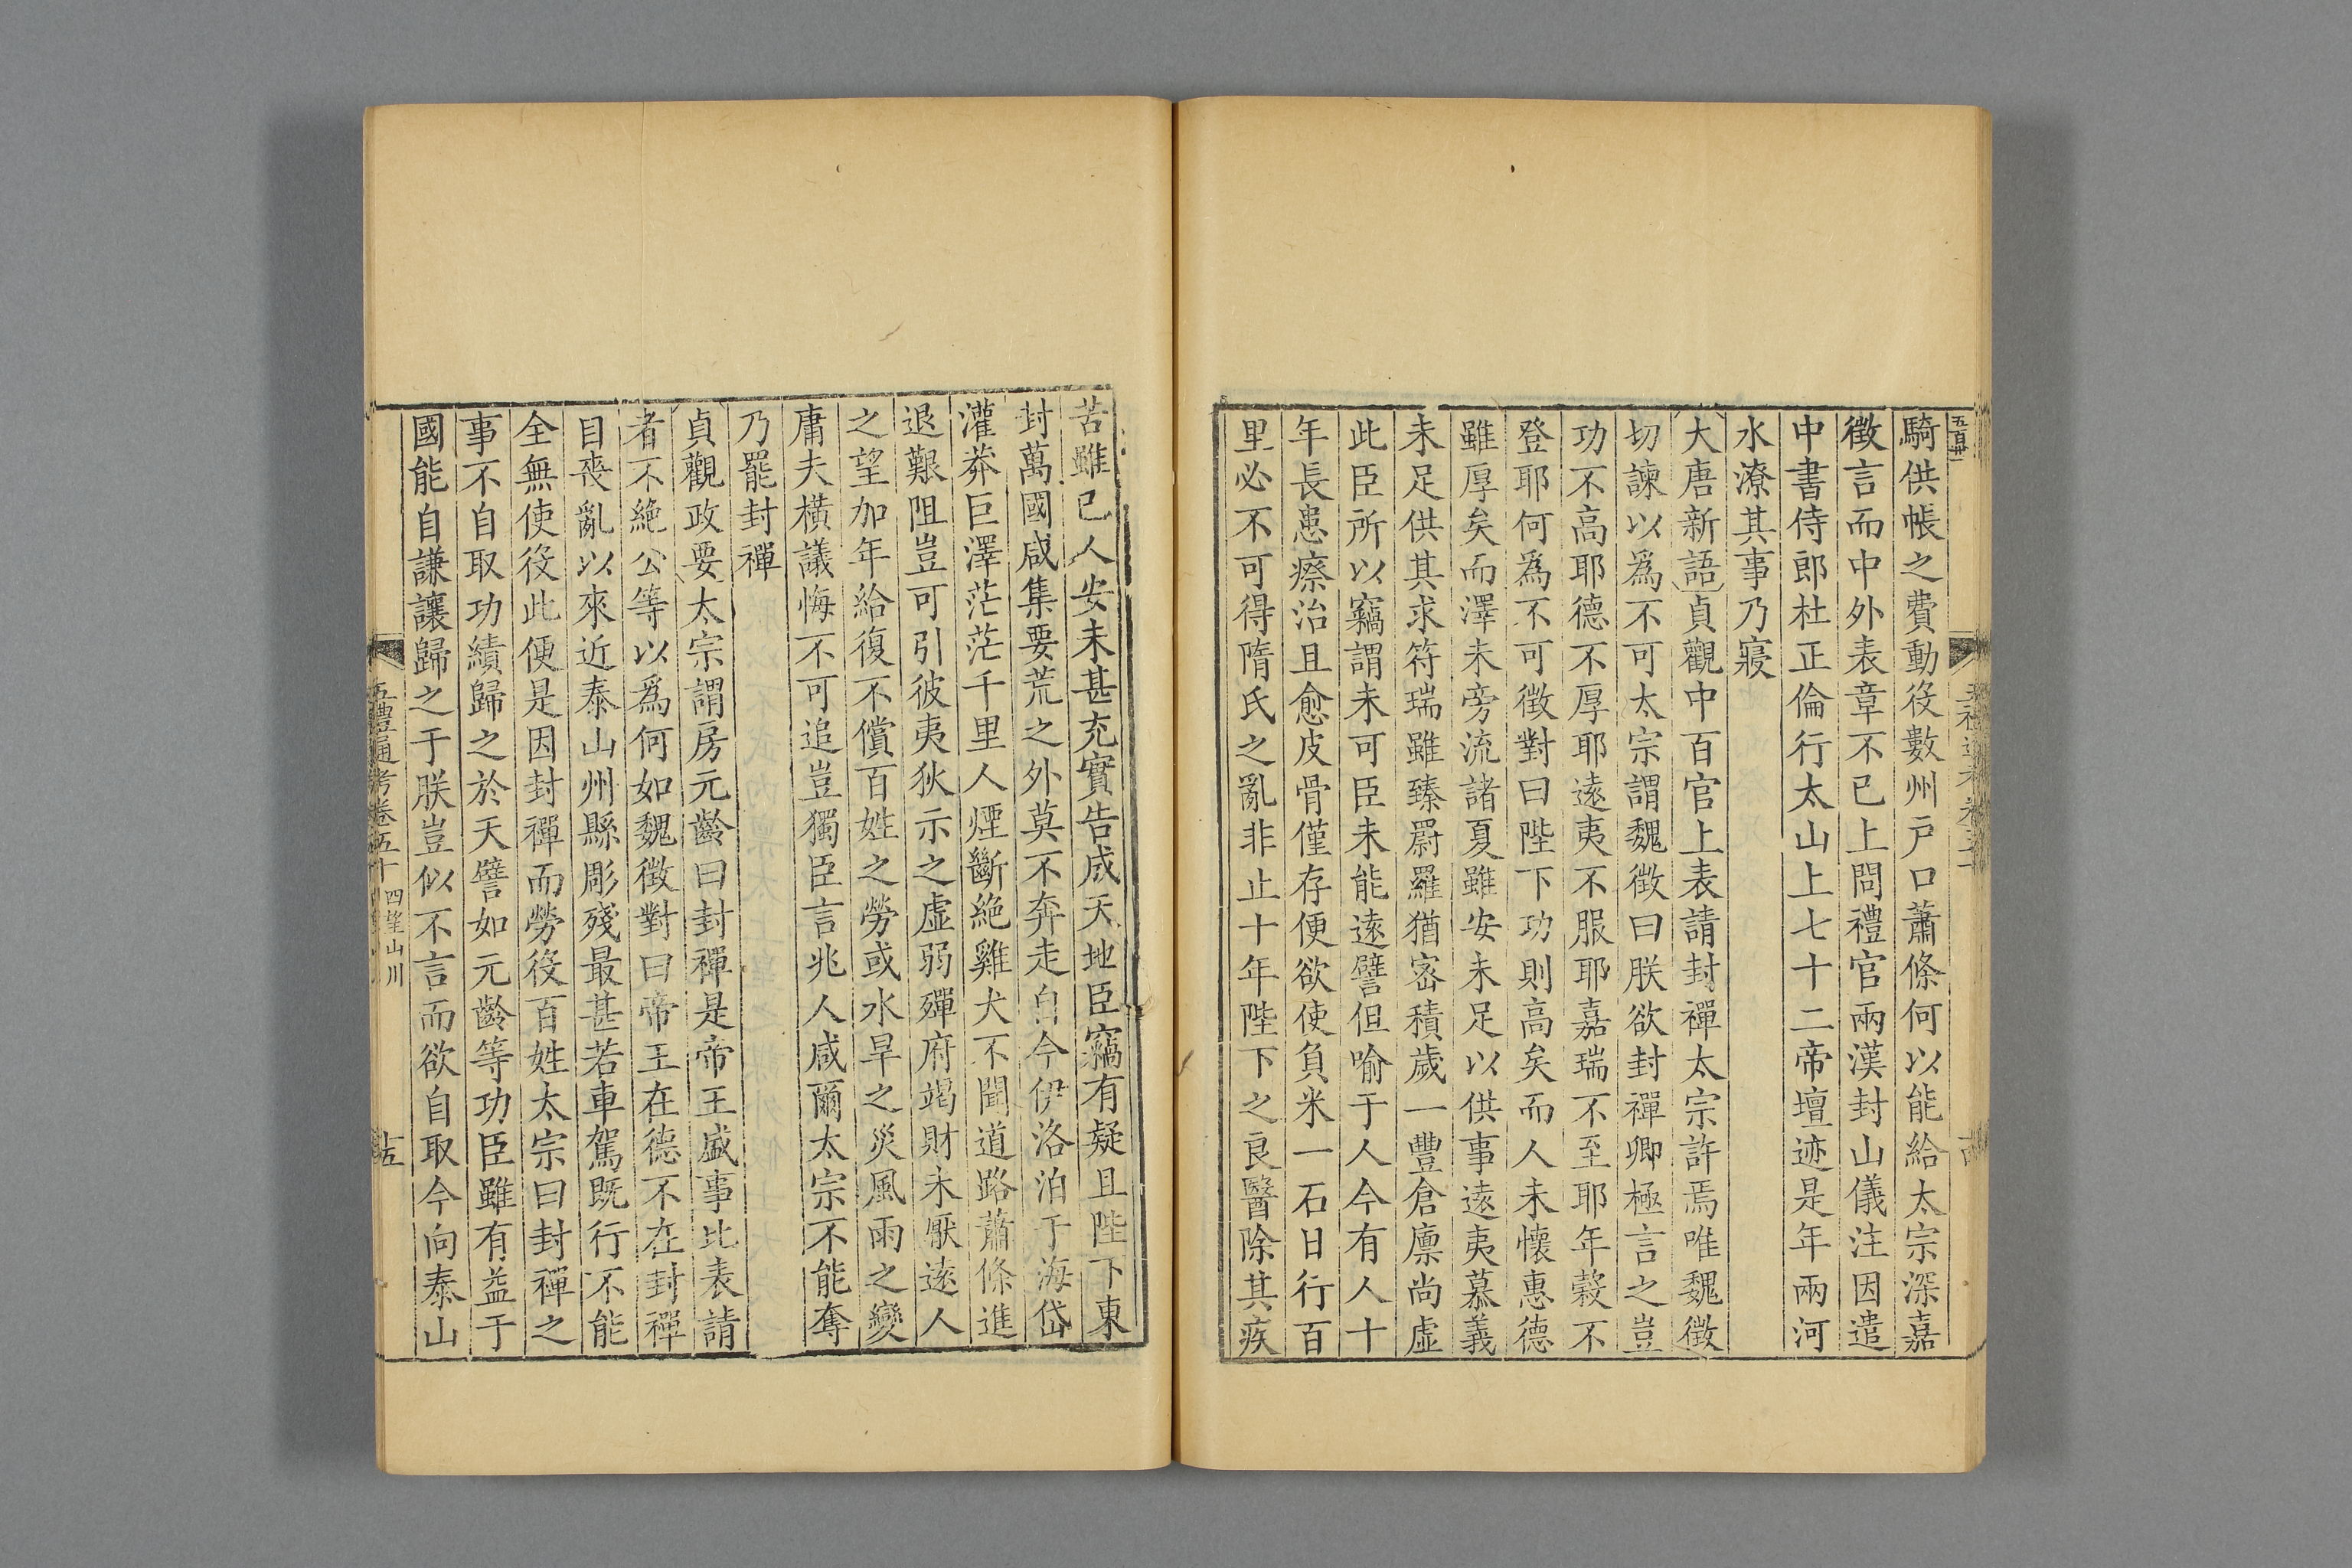 五百卌一
騎供帳之費動役數州戸口蕭條何以能給太宗深嘉
徵言而中外表章不已上問禮官兩漢封山儀注因遣
中書侍郎杜正倫行太山上七十二帝壇迹是年兩河
水潦其事乃寢
大唐新語貞觀中百官上表請封禪太宗許焉唯魏徵
切諫以爲不可太宗謂魏徵曰朕欲封禪卿極言之豈
功不高耶德不厚耶遠夷不服耶嘉瑞不至耶年穀不
登耶何爲不可徵對曰陛下功則高矣而人未懷惠德
雖厚矣而澤未旁流諸夏雖安未足以供事遠夷慕義
未足供其求符瑞雖臻罻羅猶密積歲一豐倉廩尚虛
此臣所以竊謂未可臣未能遠譬但喻于人今有人十
年長患瘵治且愈皮骨僅存便欲使負米一石日行百
里必不可得隋氏之亂非止十年陛下之良醫除其疾
苦雖已人安未甚充實告成天地臣竊有疑且陛下東
封萬國咸集要荒之外莫不奔走自今伊洛洎于海岱
灌莽巨澤茫茫千里人煙斷絶雞犬不聞道路蕭條進
退艱阻豈可引彼夷狄示之虛弱殫府竭財未厭遠人
之望加年給復不償百姓之勞或水旱之災風雨之變
庸夫橫議悔不可追豈獨臣言兆人咸爾太宗不能奪
乃罷封禪
貞觀政要太宗謂房元齡曰封禪是帝王盛事比表請
者不絶公等以爲何如魏徵對曰帝王在德不在封禪
目喪亂以來近泰山州縣彫殘最甚若車駕既行不能
全無使役此便是因封禪而勞役百姓太宗曰封禪之
事不自取功績歸之於天譬如元齡等功臣雖有益于
國能自謙讓歸之于朕豈似不言而欲自取今向泰山
五禮通考卷五十 四望山川
十五